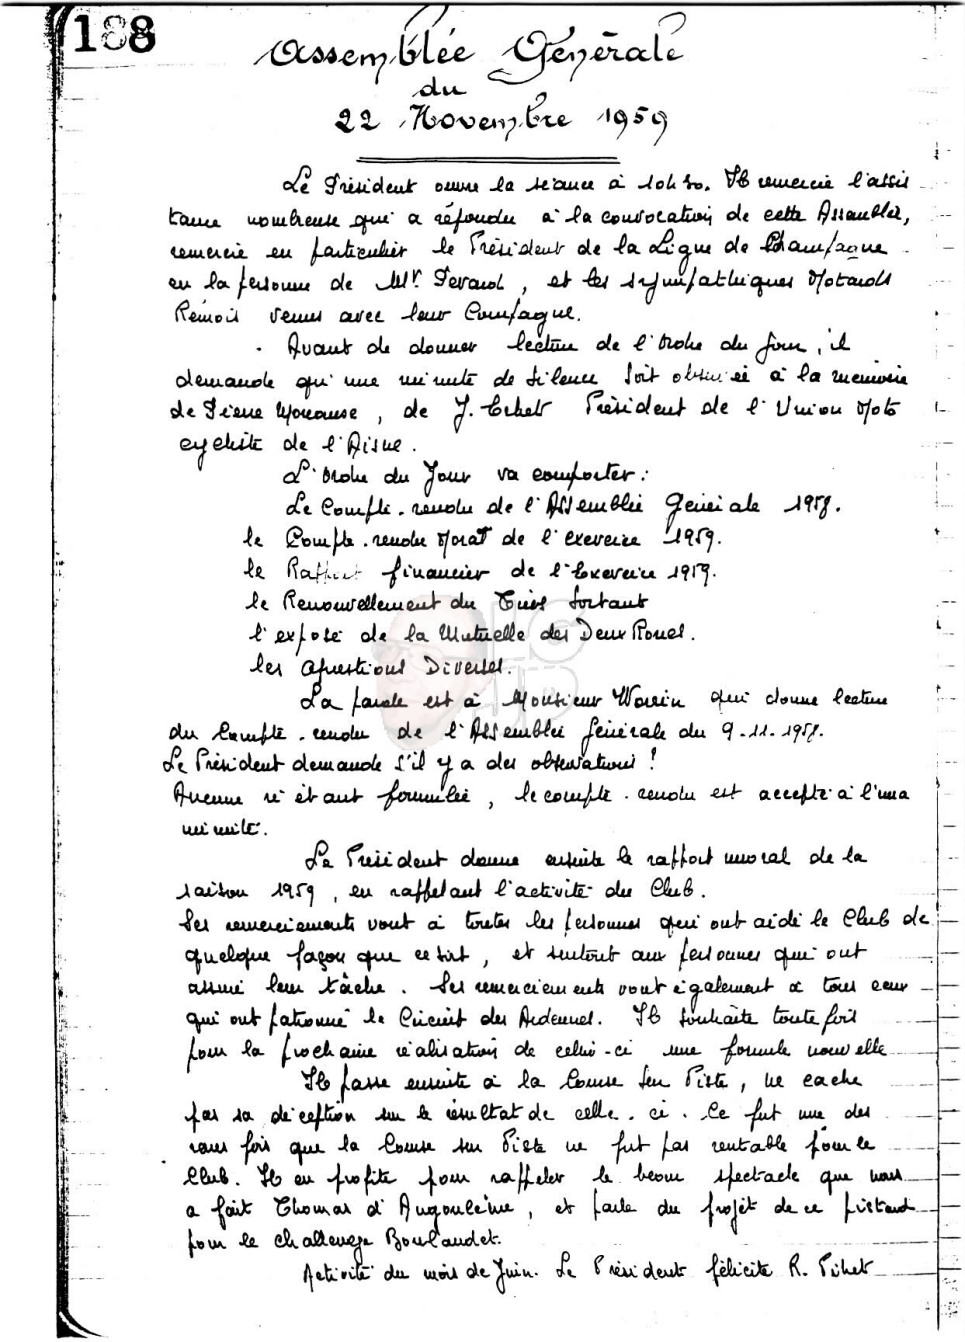 188
Assemblée Générale
du
22 Novembre 1959
Le Président ouvre la séance à 10h30. Il remercie l'assis
tance nombreuse qui a répondu à la convocation de cette Assemblée,
remercie en particulier le Président de la Ligue de Champagne
en la personne de Mr , et les sympathiques Motards
Rémois venus avec leur Compagne.
Avant de donner lecture de l'Ordre du Jour, il
demande qu'une minute de silence soit observée à la mémoire
de Pierre , de J. Président de l'Union Moto
cycliste de l'Aisne.
L'Ordre du Jour va comporter :
Le Compte-rendu de l'Assemblée Générale 1958.
le Compte-rendu Moral de l'exercice 1959.
le Rapport financier de l'Exercice 1959.
le Renouvellement du Tiers Sortant
l'exposé de la Mutuelle des Deux Roues.
les Questions Diverses.
La parole est à Monsieur Warin qui donne lecture
du Compte-rendu de l'Assemblée Générale du 9-11-1958.
Le Président demande s'il y a des observations !
Aucune n'étant formulée, le compte-rendu est accepté à l'una
nimité.
Le Président donne ensuite le rapport moral de la
saison 1959, en rappelant l'activité du Club.
Ses remerciements vont à toutes les personnes qui ont aidé le Club de
quelque façon que ce soit, et surtout aux personnes qui ont
assuré leur tâche. Ses remerciements vont également à tous ceux
qui ont patronné le Circuit des Ardennes. Il souhaite toute fois
pour la prochaine réalisation de celui-ci une formule nouvelle
Il passe ensuite à la Course sur Piste, ne cache
pas sa déception sur le résultat de celle-ci. Ce fut une des
rares fois que la Course sur Piste ne fut pas rentable pour le
Club. Il en profite pour rappeler le beau spectacle que nous
a fait Thomas d'Angoulême, et parle du projet de ce pistard
pour le challenge Boulaudet.
Activité du mois de Juin. Le Président félicite R. Pihet